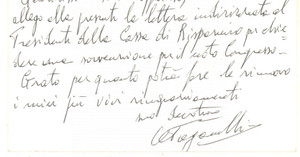 allego alla presente la lettera indirizzata al
Presidente della Cassa di Risparmio per chie
dere una sovvenzione per il noto Congresso.
Grato per quanto potrà fare le rinnovo
i miei più vivi ringraziamenti
suo devotissimo